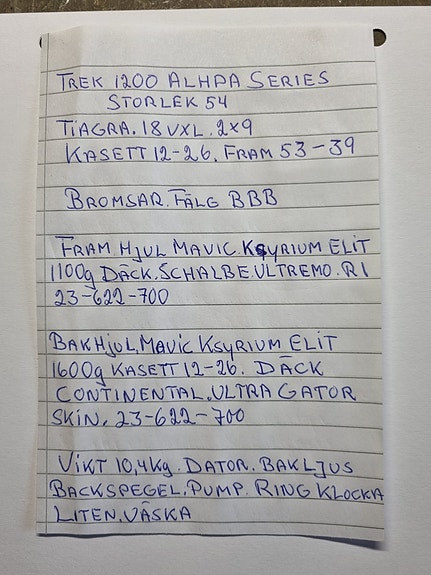 TREK 1200 ALHPA SERIES
STORLEK 54
TIAGRA. 18 VXL. 2x9
KASETT 12-26. FRAM 53-39
BROMSAR. FÄLG BBB
FRAM. HJUL MAVIC KSYRIUM ELIT
1100g DÄCK. SCHALBE. ULTREMO. R1
23-622-700
BAKHJUL. MAVIC KSYRIUM ELIT
1600g KASETT 12-26. DÄCK
CONTINENTAL. ULTRA GATOR
SKIN. 23-622-700
VIKT 10,4Kg. DATOR. BAKLJUS
BACKSPEGEL. PUMP. RING KLOCKA
LITEN. VÄSKA